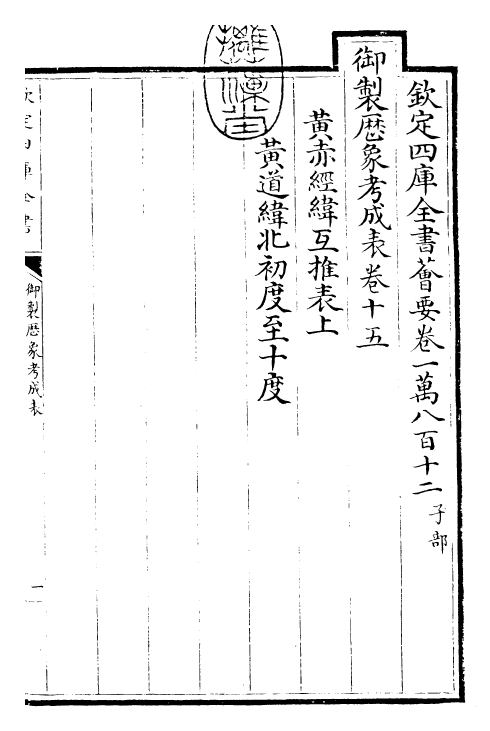 欽定四庫全書薈要卷一萬八百十二 子部
御製歷象考成表卷十五
黃赤經緯互推表上
黃道緯北初度至十度
欽定四庫全書
御製歷象考成表
一